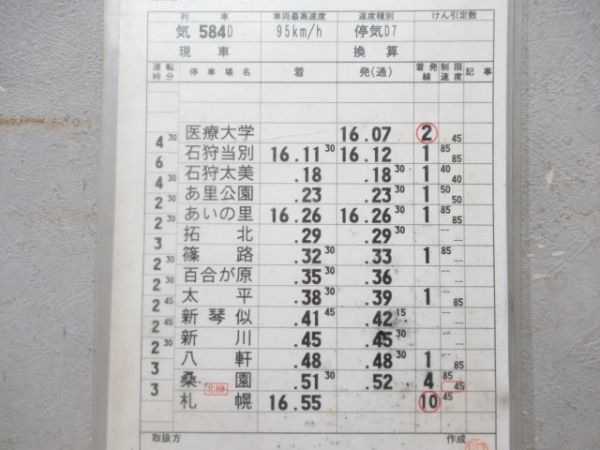 列 車 車両最高速度 速度種別 けん引定数
気 584D 95km/h 停気D7
現 車 換 算
運転時分 停車場名 着 発(通) 着発線 制限速度 記事
医療大学 16.07 2 45
4 30
石狩当別 16.11 30 16.12 1 85 85
6
石狩太美 .18 .18 30 1 40 40
4 30
あ里公園 .23 .23 30 1 50 50
2 30
あいの里 16.26 16.26 30 1 85
2 30
拓 北 .29 .29 30
3
篠 路 .32 30 .33 1 85
2 30
百合が原 .35 30 .36
2 30
太 平 .38 30 .39 1 85
2 45
新琴似 .41 45 .42 15
2 45
新 川 .45 .45 30
2 30
八 軒 .48 .48 30 1 85
3
桑 園 .51 30 .52 4 85 45
3
札 幌 16.55 10 45
取扱方 作成